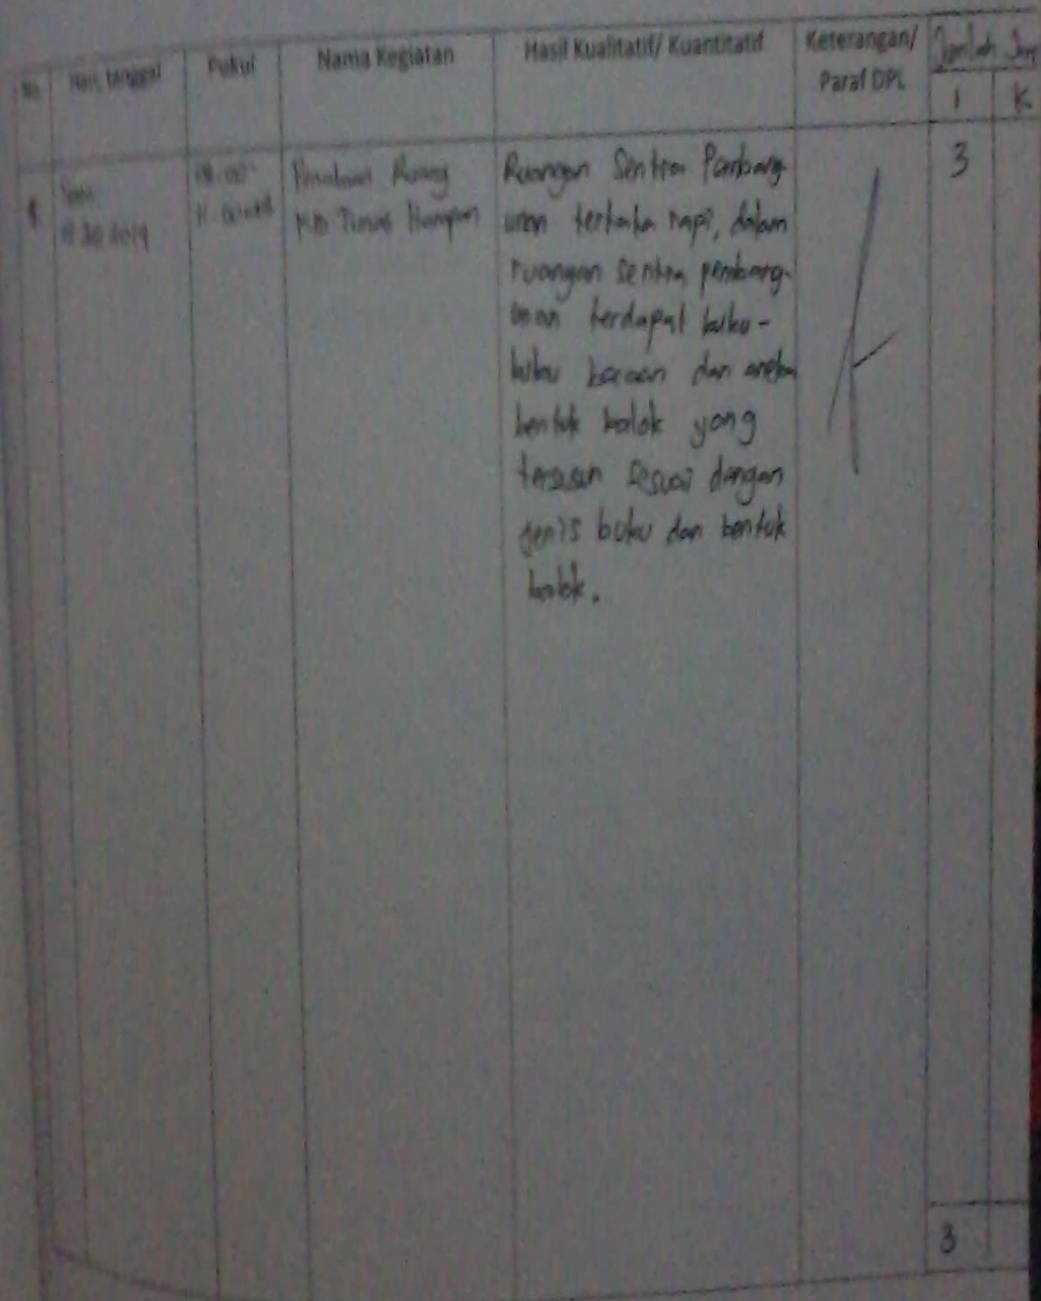 No Hari, tanggal Pukul Nama Kegiatan Hasil Kualitatif/ Kuantitatif Keterangan/ Paraf DPL Jumlah Jam
I K
Penataan Ruang
KB Tunas Harapan
Ruangan Sentra Pembang-
unan tertata rapi, dalam
ruangan sentra pembang-
unan terdapat buku-
buku bacaan dan aneka
bentuk balok yang
tersusun sesuai dengan
jenis buku dan bentuk
balok.
3
3